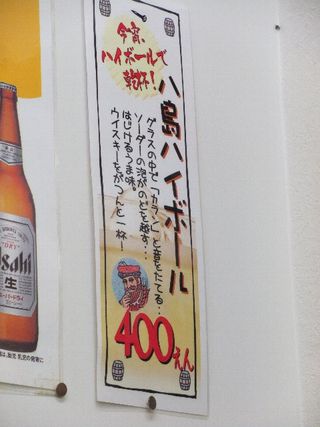 今宵、
ハイボールで
乾杯！
八島ハイボール
グラスの中で「カラン」と音をたてる…
ソーダーの泡がのどを越す…
はじけるうま味。
ウイスキーをがつんと一杯！
400えん
"DRY"
Asahi
生